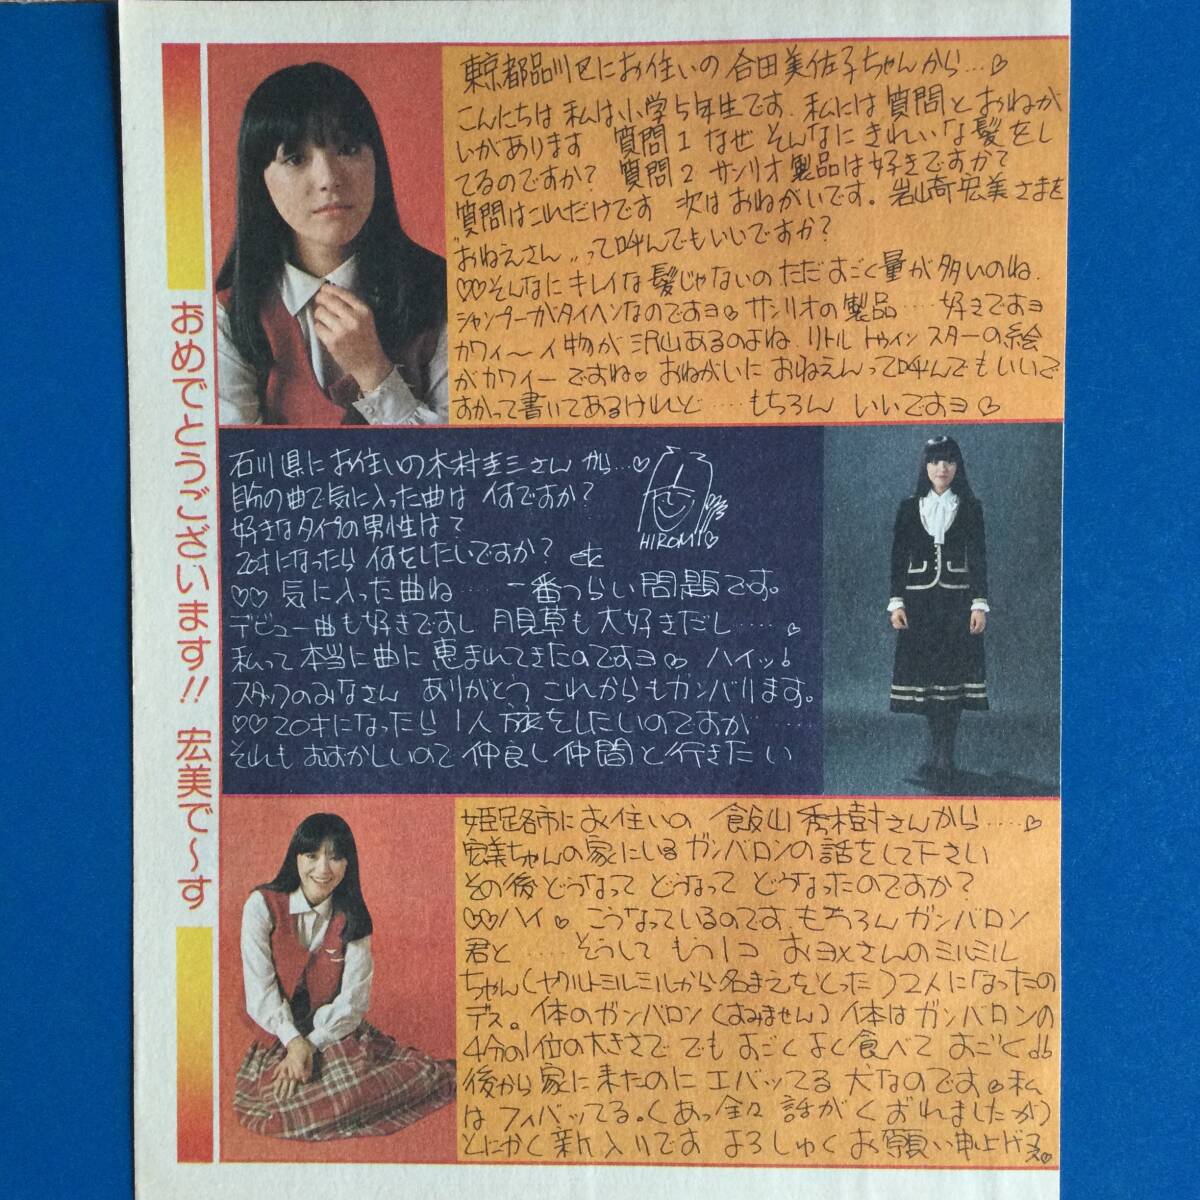 おめでとうございます!! 宏美で〜す
東京都品川区にお住いの 合田美佐子ちゃんから…♡
こんにちは 私は小学5年生です. 私には質問とおねが
いがあります 質問1 なぜ そんなに きれいな髪をし
てるのですか? 質問2 サンリオ製品は好きですか?
質問はこれだけです 次はおねがいです。岩崎宏美さまを
“おねえさん〃って呼んでもいいですか?
♡♡そんなに キレイな髪じゃないの ただすごく量が多いのね.
シャンプーがタイヘンなのですヨ♡ サンリオの製品……好きですヨ
カワィ〜ィ物が沢山あるのよね. リトル トゥイン スターの絵
がカワイーですね♡ おねがいに おねえんって呼んでもいいで
すかって書いてあるけれど……もちろん いいですヨ♡
石川県にお住いの木村圭三さん から…♡
自分の曲で気に入った曲は 何ですか?
好きなタイプの男性は?
20才になったら 何をしたいですか? etc
HIROMI♡
♡♡ 気に入った曲ね…… 一番つらい問題です。
デビュー曲も好きですし 月見草も大好きだし……。
私って本当に曲に恵まれてきたのですヨ♡ ハイッ!
スタッフのみなさん ありがとう これからもガンバリます。
♡♡20才になったら 1人旅をしたいのですが……
それもむずかしいので 仲良し仲間と行きたい
姫路市にお住いの 飯山秀樹さんから……♡
宏美ちゃんの家にいるガンバロンの話をして下さい
その後どうなって どうなって どうなったのですか?
♡♡ハイ♡ こうなっているのです. もちろん ガンバロン
君と……そうして もう1コ およメさんのミルミル
ちゃん(ヤクルトミルミルから名まえをとった)2人になったの
デス。1体のガンバロン(すみません)1体はガンバロンの
4分の1位の大きさで でも すごくよく食べて すごく
後から家に来たのに エバッてる 犬なのです。私
は フィバッてる。(あっ全々 話がくずれましたが)
とにかく 新入りです よろしゅく お願い申上げマス♡